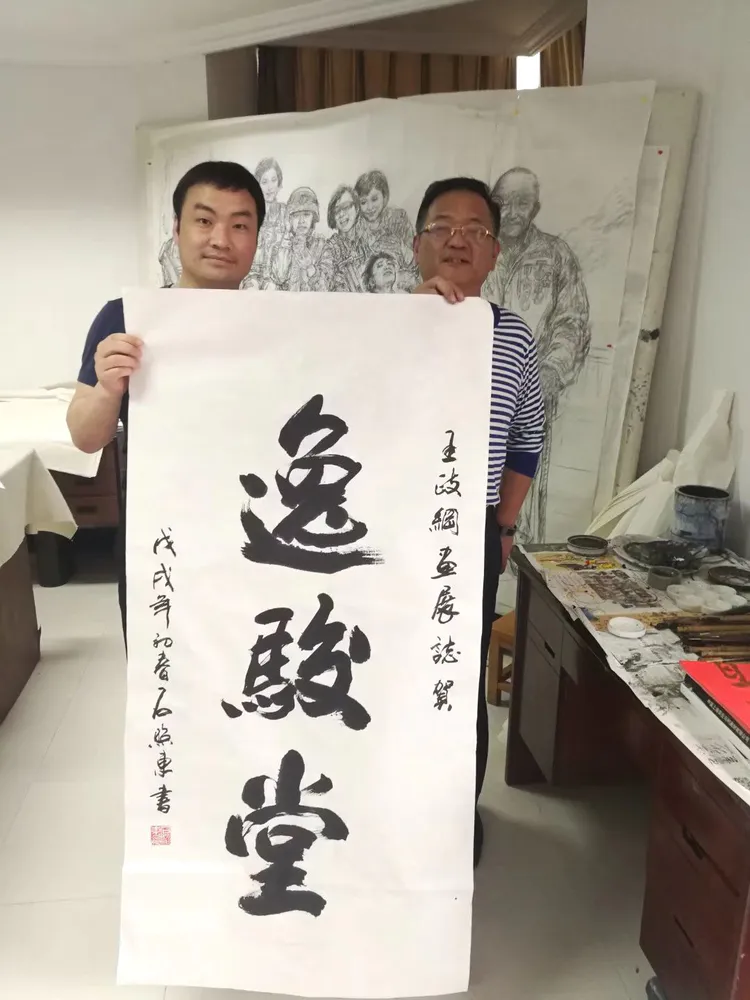 王政綱画展誌賀
逸駿堂
戊戌年初春石煥東書